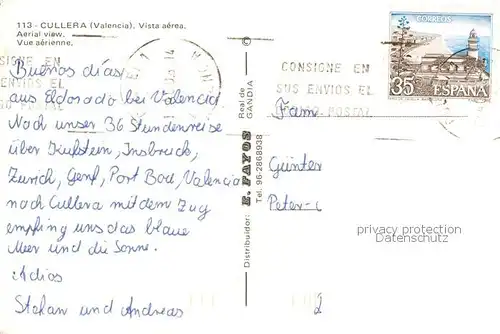 113 - CULLERA (Valencia). Vista aérea.
Aerial view.
Vue aérienne.
Buenos días
aus Eldorado bei Valencia
Nach unser 36 Stundenreise
über Kufstein, Insbruck,
Zürich, Genf, Port Bou, Valencia
nach Cullera mit dem Zug
empfing uns das blaue
Meer und die Sonne.
Adios
Stefan und Andreas
Distribuidor: E. FAYOS Real de GANDIA
Tel. 96-2868938
CORREOS
35
ESPAÑA
CONSIGNE EN
SUS ENVIOS EL
POSTAL
Fam.
Günter
Peter-
privacy protection
Datenschutz